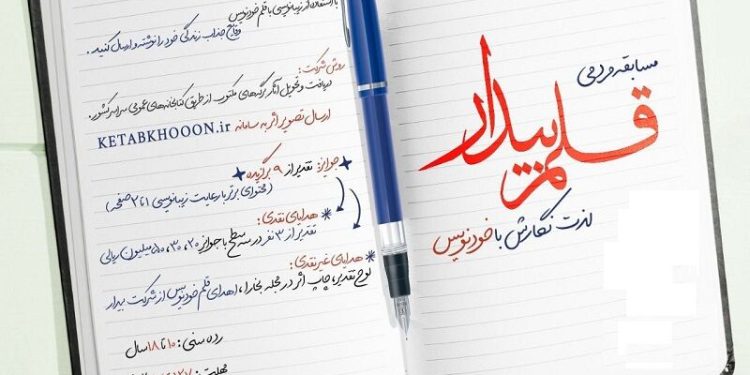 مسابقه مردمی
قلم بیدار
لذت نگارش با خودنویس
با استفاده از زیبانویسی با قلم خودنویس
وقایع جذاب زندگی خود را نوشته و ارسال کنید.
روش شرکت:
دریافت و تحویل آثار برگه‌های مکتوب از طریق کتابخانه‌های عمومی سراسر کشور.
ارسال تصویر اثر به سامانه KETABKHOOON.ir
جوایز: تقدیر از ۹ برگزیده
(محتوای برتر با رعایت زیبانویسی ۱ تا ۲ صفحه)
هدایای نقدی:
تقدیر از ۳ نفر در سه سطح با جوایز ۲۰، ۳۰، ۵۰ میلیون ریالی
هدایای غیرنقدی:
لوح تقدیر، چاپ اثر در مجله بخارا، اهدای قلم خودنویس از شرکت بیدار
رده سنی: ۱۰ تا ۱۸ سال
مهلت: